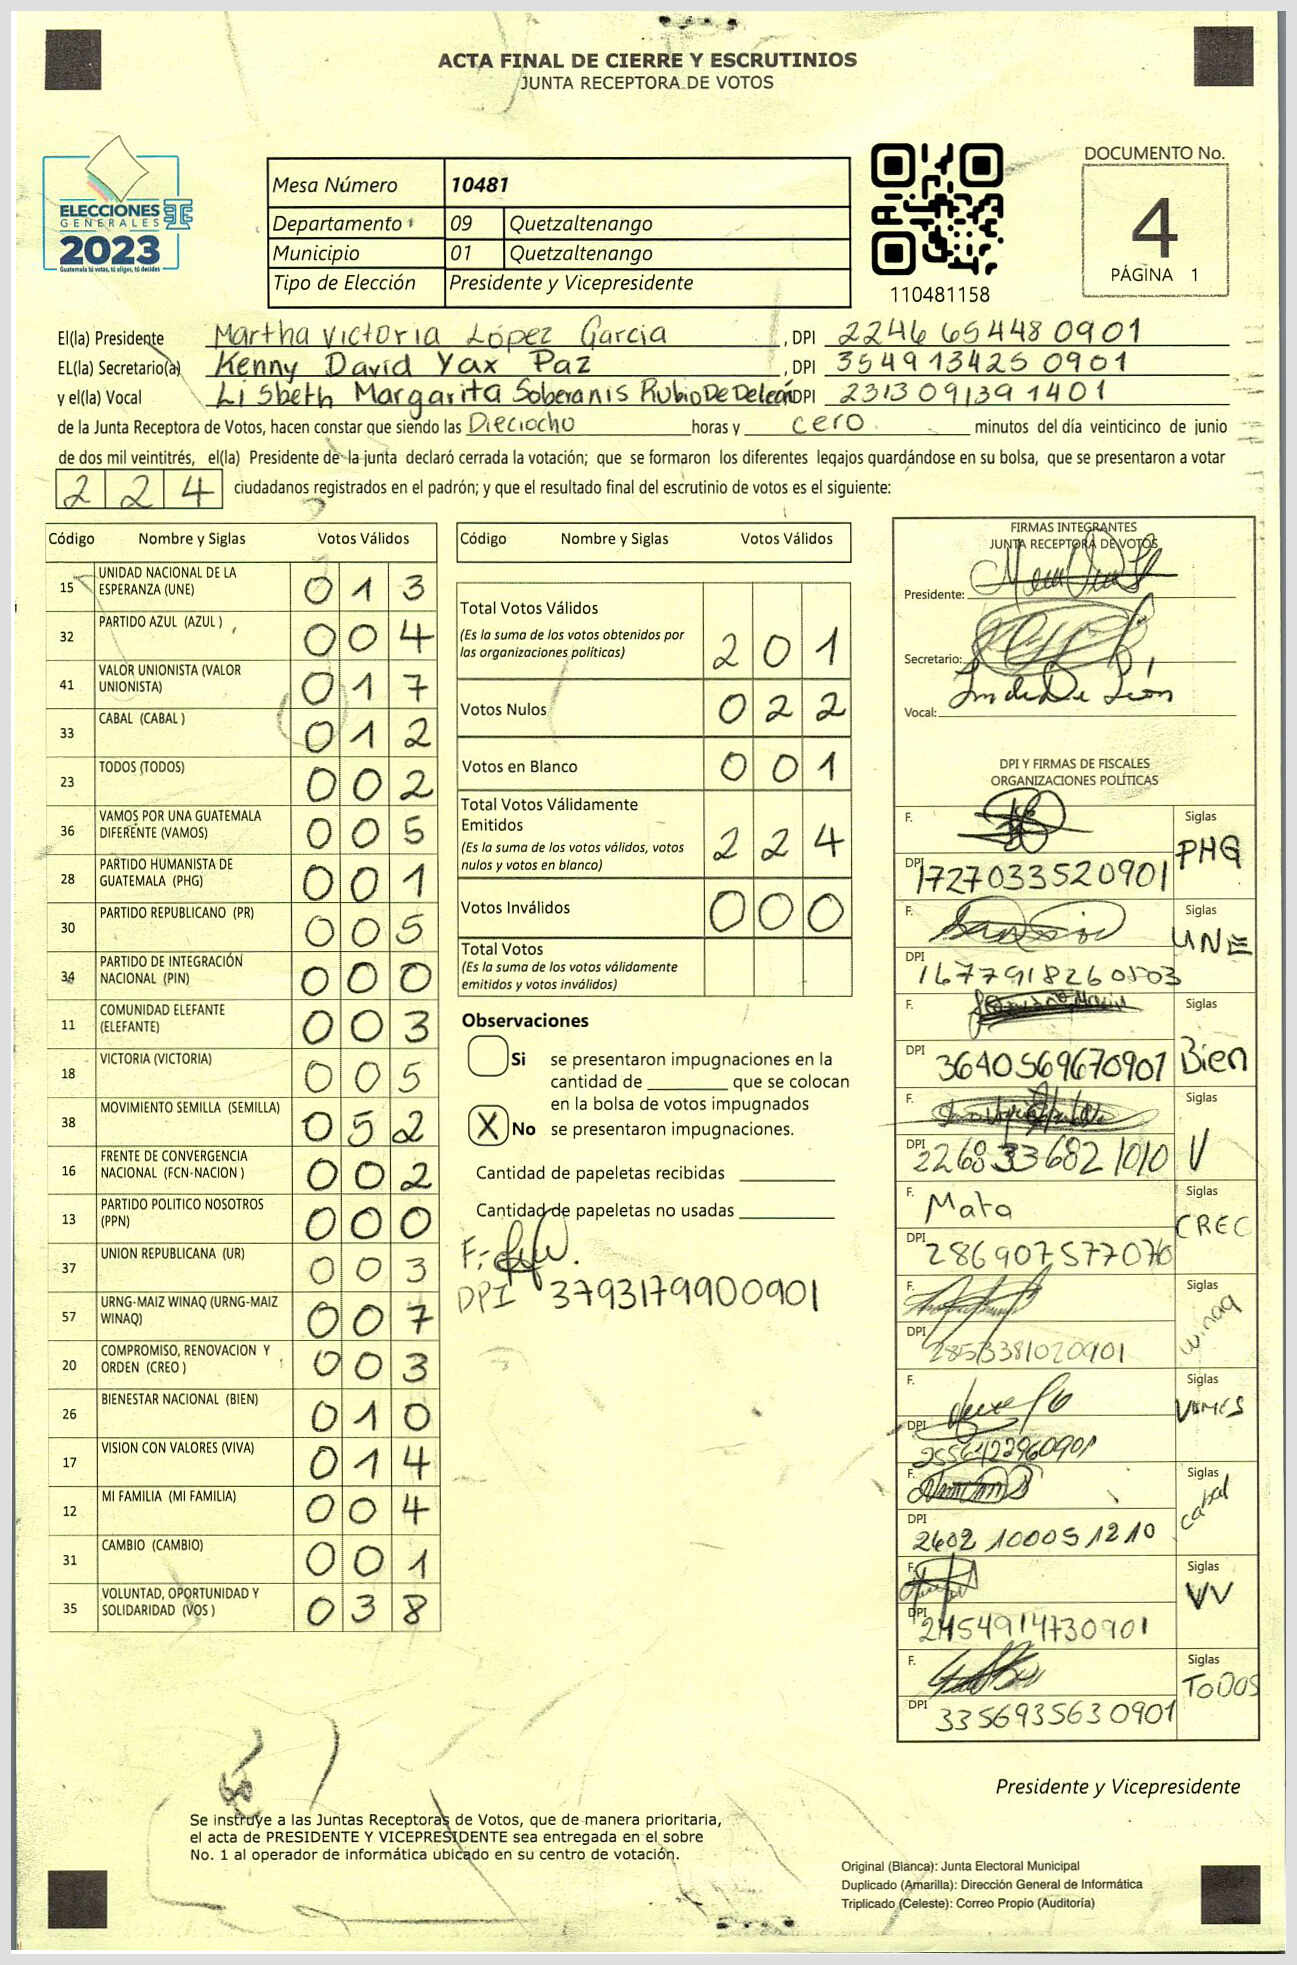 ACTA FINAL DE CIERRE Y ESCRUTINIOS
JUNTA RECEPTORA DE VOTOS
ELECCIONES
GENERALES
2023
Guatemala tú votas, tú eliges, tú decides
Mesa Número 10481
Departamento 09 Quetzaltenango
Municipio 01 Quetzaltenango
Tipo de Elección Presidente y Vicepresidente
110481158
DOCUMENTO No.
4
PÁGINA 1
El(la) Presidente Martha Victoria López Garcia, DPI 2246 65448 0901
EL(la) Secretario(a) Kenny David Yax Paz, DPI 354913425 0901
y el(la) Vocal Lisbeth Margarita Soberanis Rubio De Deleón DPI 231309139 1401
de la Junta Receptora de Votos, hacen constar que siendo las Dieciocho horas y cero minutos del día veinticinco de junio
de dos mil veintitrés, el(la) Presidente de la junta declaró cerrada la votación; que se formaron los diferentes legajos guardándose en su bolsa, que se presentaron a votar
224 ciudadanos registrados en el padrón; y que el resultado final del escrutinio de votos es el siguiente:
Código Nombre y Siglas Votos Válidos
15 UNIDAD NACIONAL DE LA ESPERANZA (UNE) 013
32 PARTIDO AZUL (AZUL ) 004
41 VALOR UNIONISTA (VALOR UNIONISTA) 017
33 CABAL (CABAL ) 012
23 TODOS (TODOS) 002
36 VAMOS POR UNA GUATEMALA DIFERENTE (VAMOS) 005
28 PARTIDO HUMANISTA DE GUATEMALA (PHG) 001
30 PARTIDO REPUBLICANO (PR) 005
34 PARTIDO DE INTEGRACIÓN NACIONAL (PIN) 000
11 COMUNIDAD ELEFANTE (ELEFANTE) 003
18 VICTORIA (VICTORIA) 005
38 MOVIMIENTO SEMILLA (SEMILLA) 052
16 FRENTE DE CONVERGENCIA NACIONAL (FCN-NACION ) 002
13 PARTIDO POLITICO NOSOTROS (PPN) 000
37 UNION REPUBLICANA (UR) 003
57 URNG-MAIZ WINAQ (URNG-MAIZ WINAQ) 007
20 COMPROMISO, RENOVACION Y ORDEN (CREO ) 003
26 BIENESTAR NACIONAL (BIEN) 010
17 VISION CON VALORES (VIVA) 014
12 MI FAMILIA (MI FAMILIA) 004
31 CAMBIO (CAMBIO) 001
35 VOLUNTAD, OPORTUNIDAD Y SOLIDARIDAD (VOS ) 038
Código Nombre y Siglas Votos Válidos
Total Votos Válidos
(Es la suma de los votos obtenidos por las organizaciones políticas) 201
Votos Nulos 022
Votos en Blanco 001
Total Votos Válidamente Emitidos
(Es la suma de los votos válidos, votos nulos y votos en blanco) 224
Votos Inválidos 000
Total Votos
(Es la suma de los votos válidamente emitidos y votos inválidos)
Observaciones
Si se presentaron impugnaciones en la
cantidad de ________ que se colocan
en la bolsa de votos impugnados
X No se presentaron impugnaciones.
Cantidad de papeletas recibidas
Cantidad de papeletas no usadas
F:
DPI 3793179900901
FIRMAS INTEGRANTES
JUNTA RECEPTORA DE VOTOS
Presidente:
Secretario:
Vocal:
DPI Y FIRMAS DE FISCALES
ORGANIZACIONES POLÍTICAS
F. Siglas PHG
DPI 1727033520901
F. Siglas UNE
DPI 1677918260503
F. Siglas Bien
DPI 3640569670901
F. Siglas V
DPI 2268336821010
F. Mata Siglas CREC
DPI 286907577070
F. Siglas winaq
DPI 2853381020901
F. Siglas
DPI 2556422960901
F. Siglas cabal
DPI 2602 10005 1210
F. Siglas VV
DPI 2454914730901
F. Siglas TODOS
DPI 3356935630901
Presidente y Vicepresidente
Se instruye a las Juntas Receptoras de Votos, que de manera prioritaria,
el acta de PRESIDENTE Y VICEPRESIDENTE sea entregada en el sobre
No. 1 al operador de informática ubicado en su centro de votación.
Original (Blanca): Junta Electoral Municipal
Duplicado (Amarilla): Dirección General de Informática
Triplicado (Celeste): Correo Propio (Auditoría)